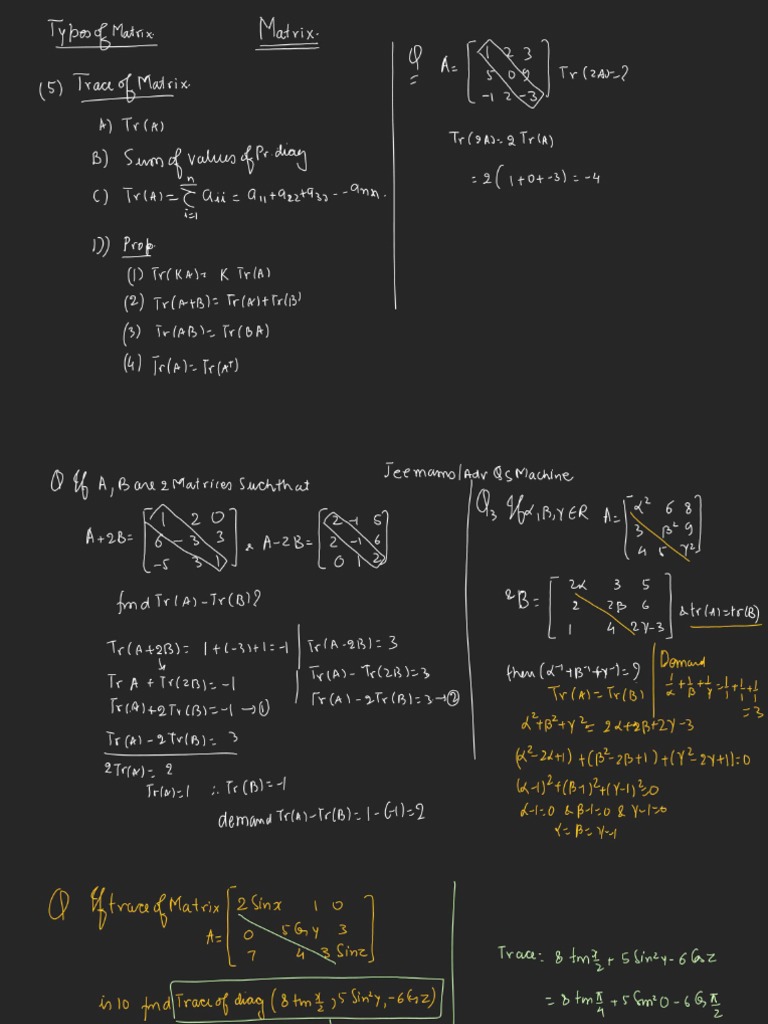 Types of Matrix.
Matrix.
(5) Trace of Matrix.
A) Tr(A)
B) Sum of values of Pr. diag
C) Tr(A) = n Σ i=1 aii = a11 + a22 + a33 --- ann.
D) Prop.
(1) Tr(KA) = K Tr(A)
(2) Tr(A+B) = Tr(A) + Tr(B)
(3) Tr(AB) = Tr(BA)
(4) Tr(A) = Tr(Aᵀ)
Q
1 2 3
A = 5 0 9 Tr(2A) = ?
-1 2 -3
Tr(2A) = 2 Tr(A)
= 2(1+0+-3) = -4
Jeemains/Adv Qs Machine
Q If A, B are 2 Matrices Such that
1 2 0
A+2B = 6 -3 3
-5 3 1
2 -1 5
& A-2B = 2 -1 6
0 1 2
find Tr(A) - Tr(B)?
Tr(A+2B) = 1+(-3)+1 = -1
Tr A + Tr(2B) = -1
Tr(A) + 2Tr(B) = -1 → ①
Tr(A) - 2Tr(B) = 3
2Tr(A) = 2
Tr(A) = 1 ∴ Tr(B) = -1
demand Tr(A) - Tr(B) = 1 - (-1) = 2
Tr(A-2B) = 3
Tr(A) - Tr(2B) = 3
Tr(A) - 2Tr(B) = 3 → ②
Q3 If α, β, γ ∈ R
α² 6 8
A = 3 β² 9
4 5 γ²
2α 3 5
B = 2 2β 6 & tr(A) = tr(B)
1 4 2γ-3
then (α⁻¹+β⁻¹+γ⁻¹) = ?
Demand
1/α + 1/β + 1/γ = 1/1 + 1/1 + 1/1
= 3
Tr(A) = Tr(B)
α²+β²+γ² = 2α+2β+2γ-3
(α²-2α+1) + (β²-2β+1) + (γ²-2γ+1) = 0
(α-1)² + (β-1)² + (γ-1)² = 0
α-1=0 & β-1=0 & γ-1=0
α = β = γ = 1
Q If trace of Matrix
2 Sinx 1 0
A = 0 5 Cos y 3
7 4 3 Sinz
is 10 find Trace of diag (8 tan x/2, 5 Sin²y, -6 Cos z)
Trace = 8 tan x/2 + 5 Sin²y - 6 Cos z
= 8 tan π/4 + 5 Sin²0 - 6 Cos π/2